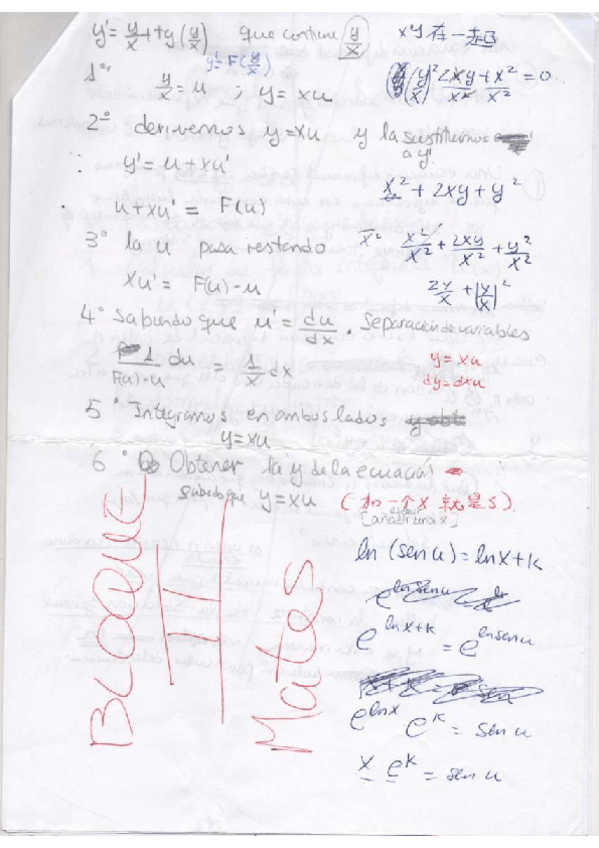 y' = y/x + tg(y/x) que contiene y/x
y' = F(y/x)
x y 在一起
1er y/x = u ; y = xu
y² 2xy + x² = 0
x² x²
2º derivemos y = xu y la sustituimos
a y'
∴ y' = u + xu'
x² + 2xy + y²
u + xu' = F(u)
3º la u pasa restando
x² x²/x² + 2xy/x² + y²/x²
xu' = F(u) - u
2y/x + (y/x)²
4º Sabiendo que u' = du/dx . Separación de variables
1/(F(u) - u) du = 1/x dx
y = xu
dy = dxu
5º Integramos en ambos lados
y = xu
6º Obtener la y de la ecuación
sabiendo que y = xu (加一个 x 就是 S).
[añadir una x]
BLOQUE
I
Mates
ln (sen u) = ln x + k
e^(ln x + k) = e^(ln sen u)
e^(ln x) e^k = sen u
x e^k = sen u